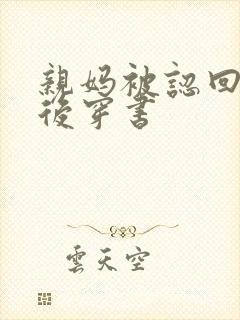 親妈被認回
後穿書
雲天空